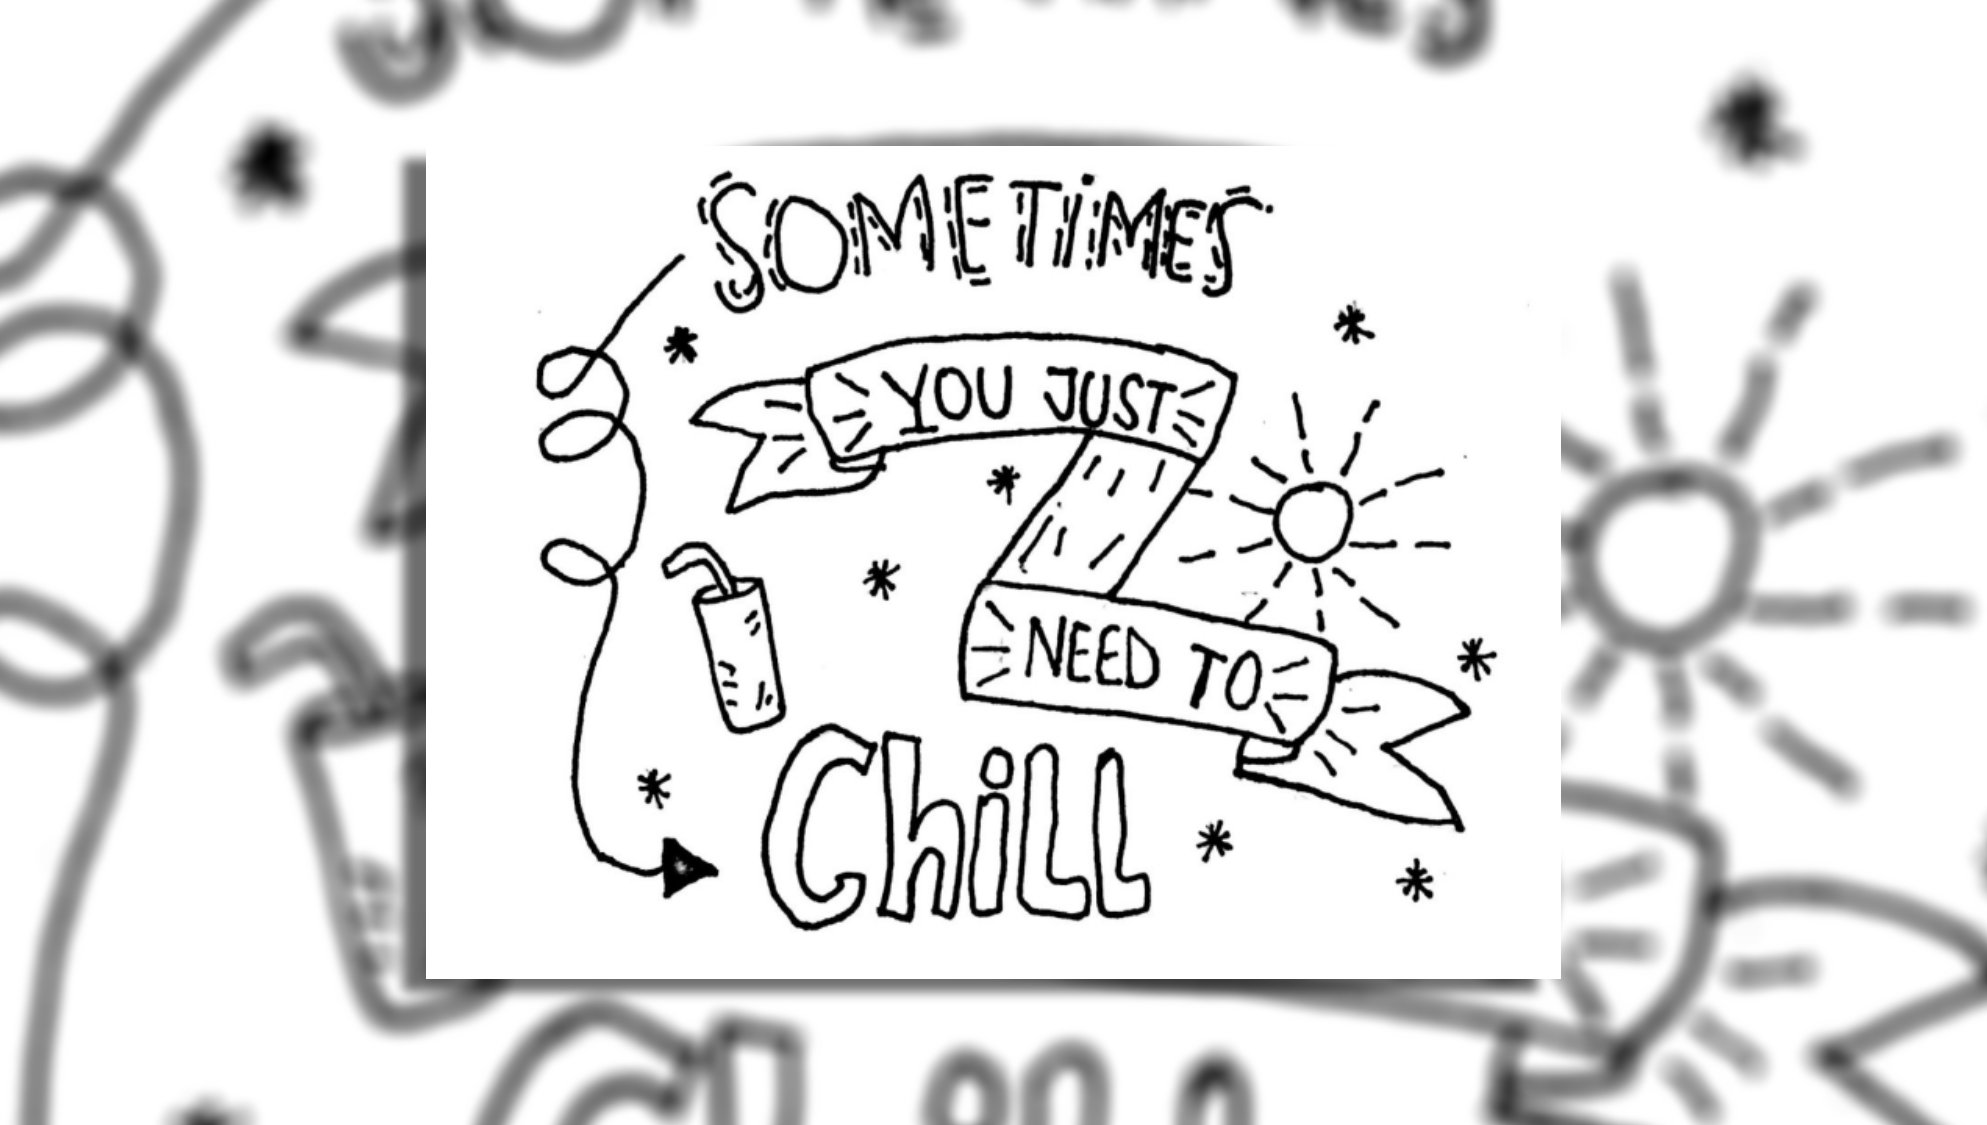 SOMETiMES
YOU JUST
NEED TO
ChiLL